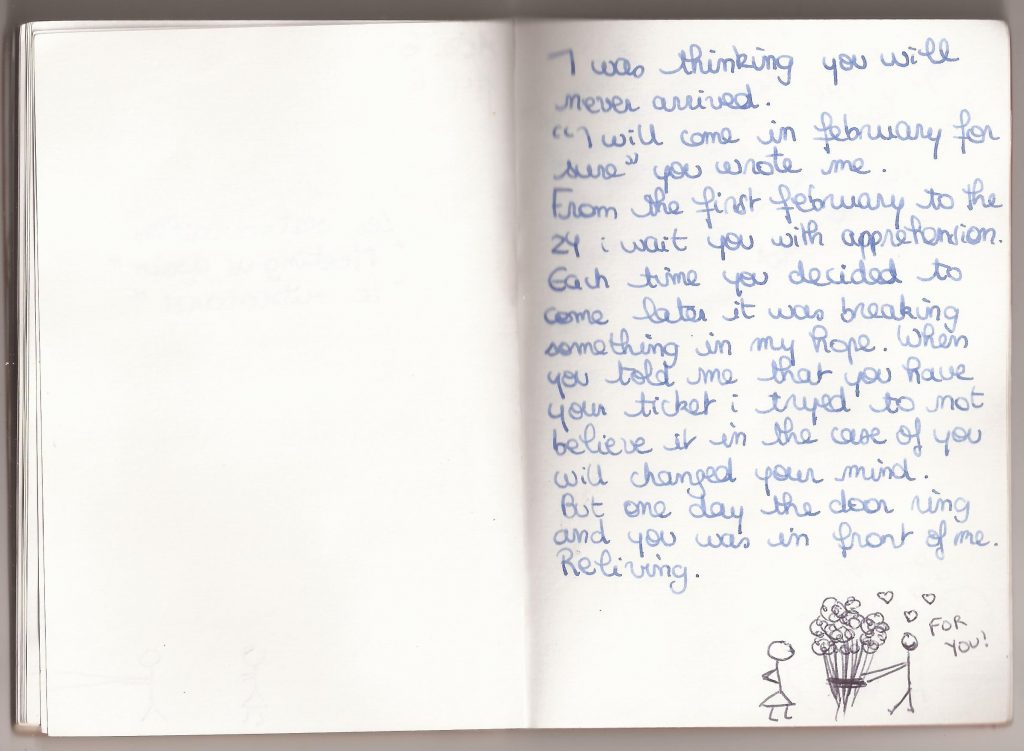 I was thinking you will
never arrived.
“I will come in february for
sure” you wrote me.
From the first february to the
24 i wait you with apprehension.
Each time you decided to
come later it was breaking
something in my hope. When
you told me that you have
your ticket i tryed to not
believe it in the case of you
will changed your mind.
But one day the door ring
and you was in front of me.
Reliving.
FOR
YOU!